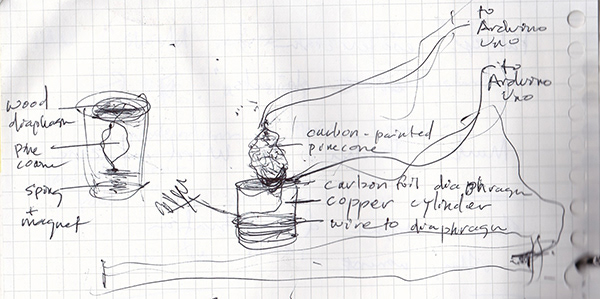 to
Arduino
Uno
to
Arduino
Uno
wood
diaphagm
pine
cone
sping
+
magnet
carbon-painted
pinecone
carbon foil diaphragm
copper cylinder
wire to diaphragm